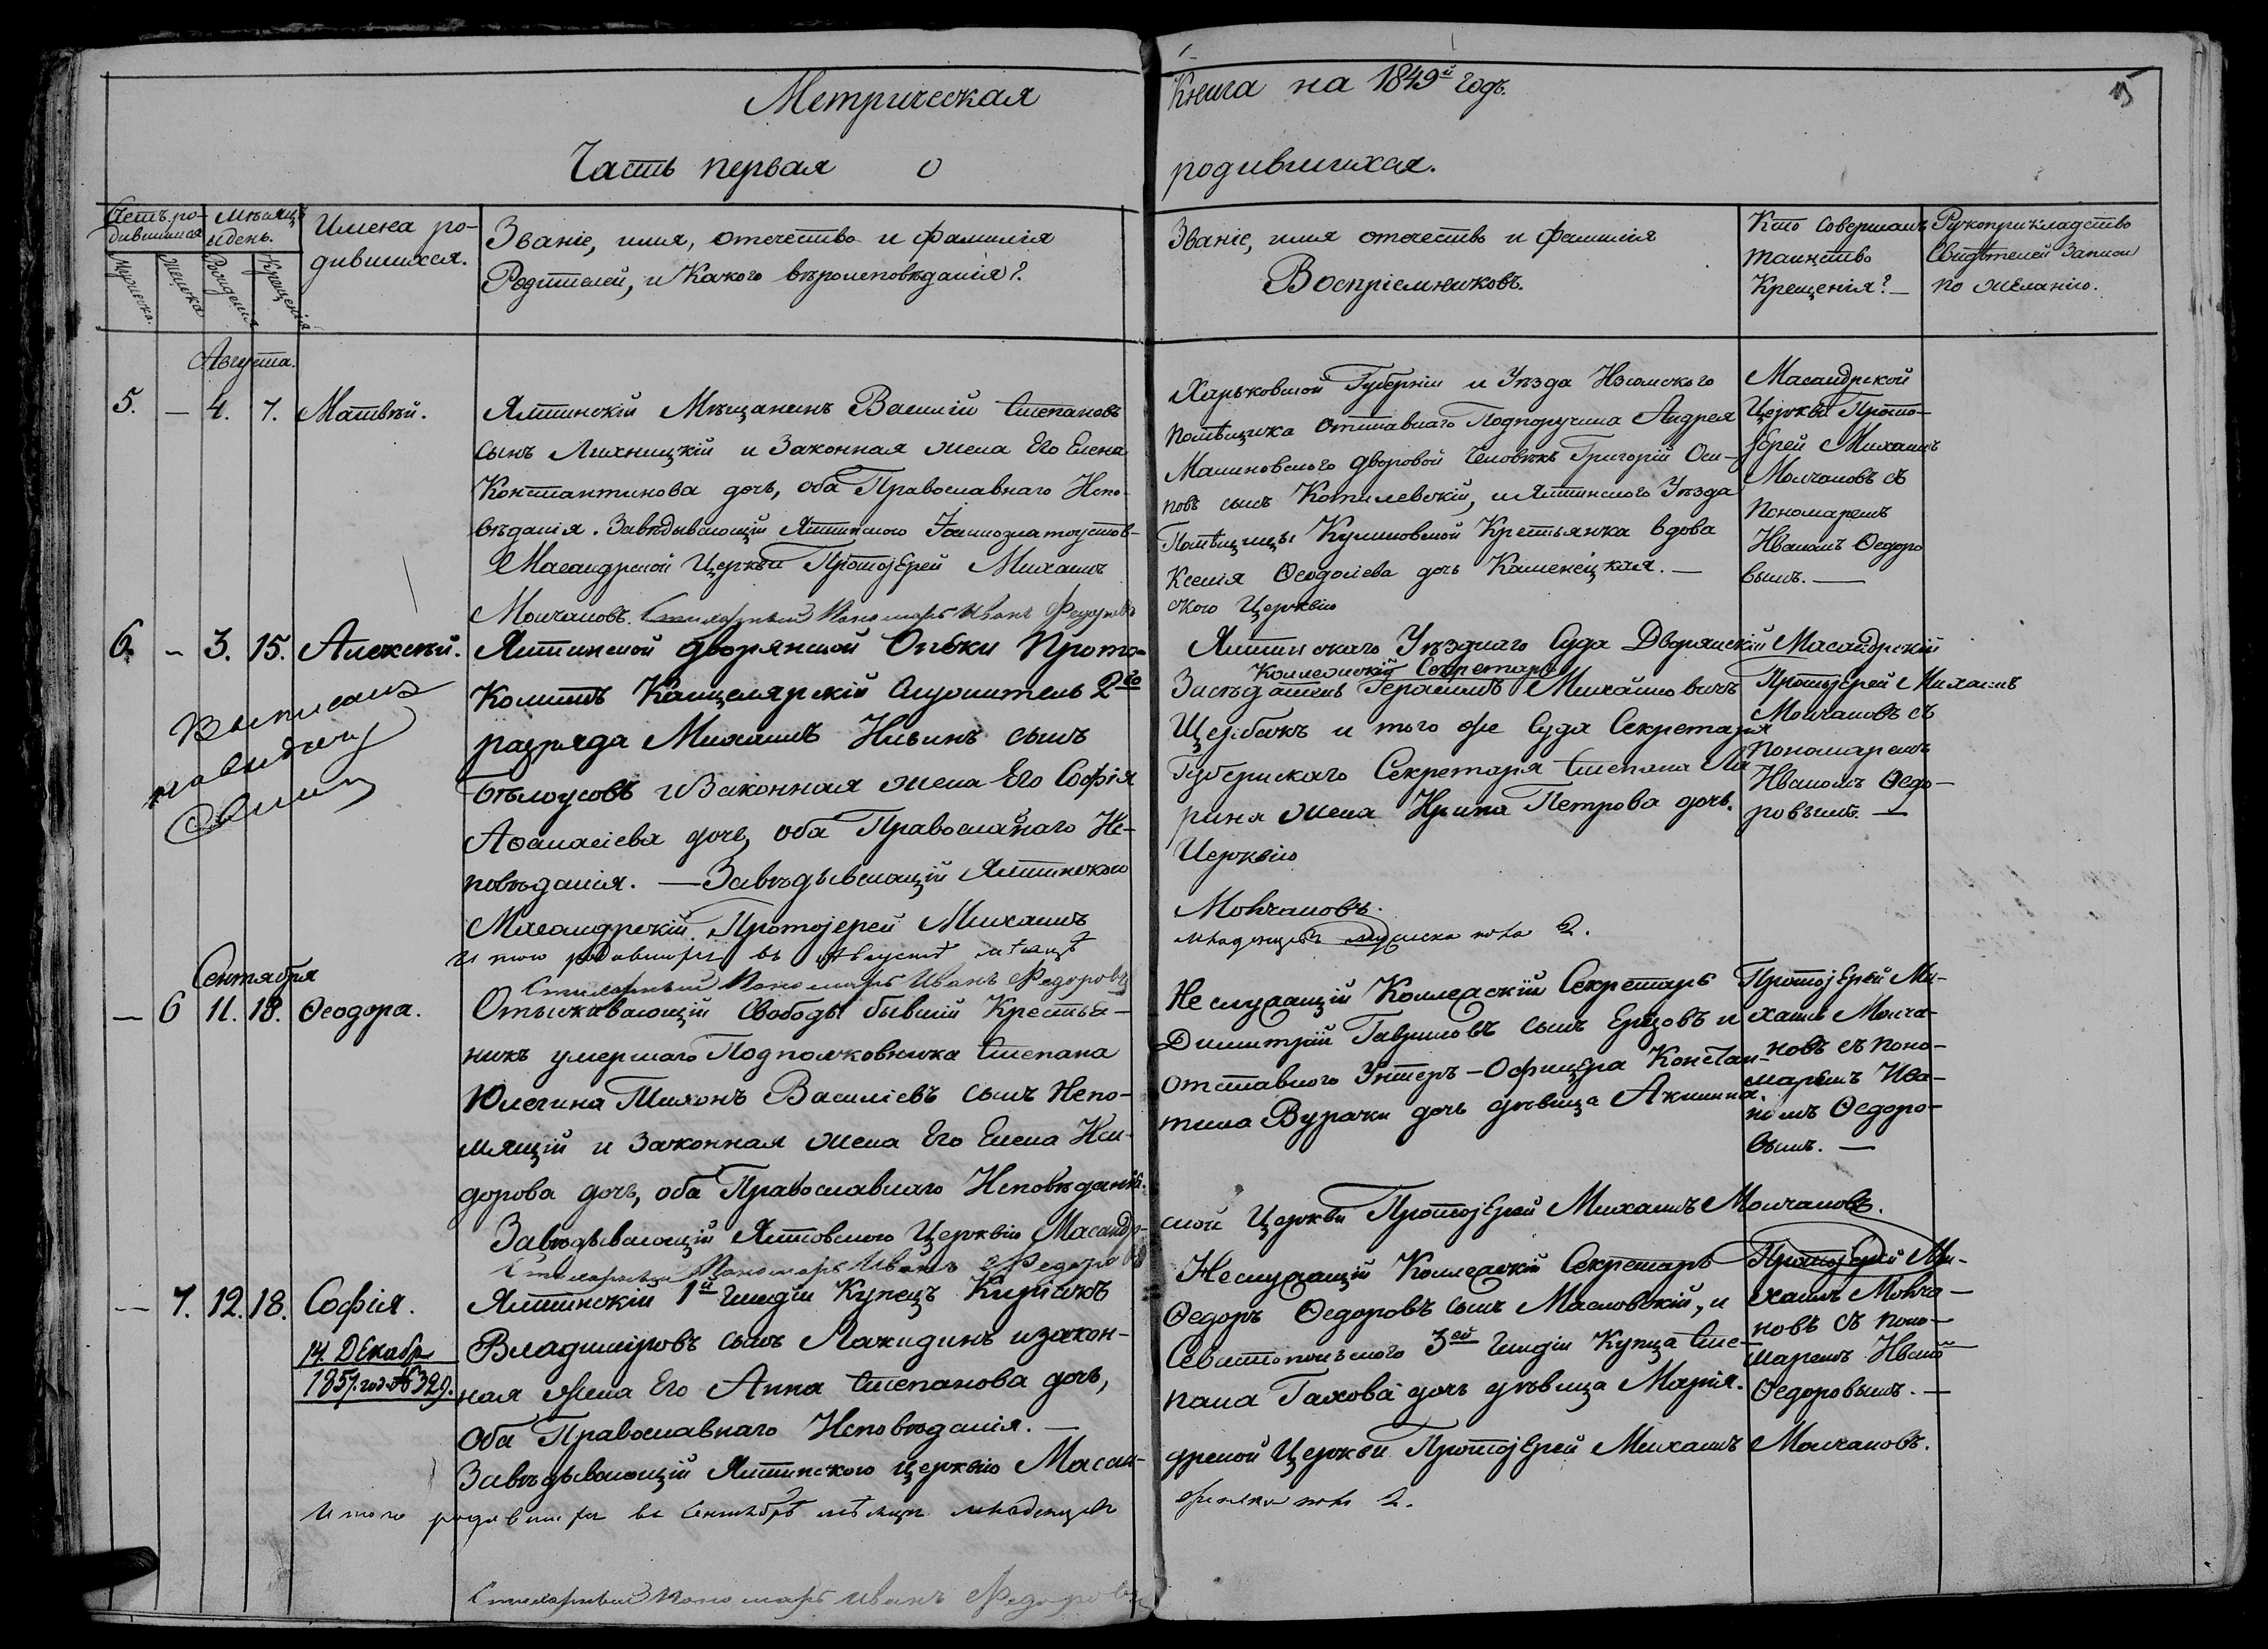 Метрическая Книга на 1849й годъ.
Часть первая о родившихся.
Счетъ ро-
дившихся
Мѣсяцъ
и день.
Мужеска.
Женска
Рожденія
Крещенія
Имена ро-
дившихся.
Званіе, имя, отечество и фамилія
Родителей, и Какого вѣроисповѣданія?
Званіе, имя отечество и фамилія
Воспріемниковъ.
Кто совершалъ
таинство
Крещенія? —
Рукоприкладство
Свидѣтелей записи
по желанію.
Августа.
5. — 4. 7. Матвѣй.
Ялтинскій Мѣщанинъ Василій Степановъ
сынъ Лихницкій и Законная жена Его Елена
Константинова дочь, оба Православнаго Испо-
вѣданія. Завѣдывающій Ялтинскою
Масандрской Церкви Протоіерей Михаилъ
Молчановъ. Стихарный Пономарь Иванъ Федоровъ
Харьковской Губерніи и Уѣзда Изюмского
помѣщика отставнаго Подпоручика Андрея
Малиновского дворовой человѣкъ Григорій Оси-
повъ сынъ Котилевскій, и Ялтинского Уѣзда
Помѣщицы Куликовской Крестьянка вдова
Ксенія Ѳеодосіева дочь Каменецкая. —
скою Церквію
Масандрской
Церкви Прото-
іерей Михаилъ
Молчановъ съ
Пономаремъ
Иваномъ Ѳедоро
вымъ. —
6. — 3. 15. Алексѣй.
Ялтинской дворянской Опеки Прото-
колистъ Канцелярскій Служитель 2го
разряда Михаилъ Ильинъ сынъ
Бѣлоусовъ и Законная жена Его Софія
Аѳанасіева дочь, оба Православнаго Ис-
повѣданія. — Завѣдывающій Ялтинскою
Масандрскій Протоіерей Михаилъ
И того родившихся въ Августѣ мѣсяцѣ
Стихарный Пономарь Иванъ Федоровъ
Ялтинскаго Уѣзднаго Суда Дворянскій
Коллежскій Секретарь
Засѣдатель Герасимъ Михайловичъ
Щербакъ и того же Суда Секретаря
Губернскаго Секретаря Степана Ла
рина жена Ирина Петрова дочь.
Церквію
Молчановъ.
младенцевъ мужеска пола 2.
Масандрскій
Протоіерей Михаилъ
Молчановъ съ
Пономаремъ
Иваномъ Ѳедо-
ровымъ. —
Сентября
— 6 11. 18. Ѳеодора.
Отыскивающій Свободы бывшій Крестья-
нинъ умершаго Подполковника Степана
Юлегина Тихонъ Василіевъ сынъ Непо-
млящій и законная жена Его Елена Иси-
дорова дочь, оба Православнаго Исповѣданія.
Завѣдывающій Ялтовскою Церквію Масандр-
Стихарный Пономарь Иванъ Федоровъ
Неслужащій Коллежскій Секретарь
Димитрій Гавриловъ сынъ Ерцовъ и
отставного Унтеръ-Офицера Констан-
тина Вурачи дочь дѣвица Акилина.
ской Церкви Протоіерей Михаилъ Молчановъ.
Протоіерей Ми-
хаилъ Молча-
новъ съ поно-
маремъ Ива-
номъ Ѳедоро-
вымъ. —
— 7. 12. 18. Софія.
14. Декабр
1857. год. № 329.
Ялтинскій 1й Гильдіи Купецъ Кирилъ
Владиміровъ сынъ Лакидинъ и закон-
ная жена Его Анна Степанова дочь,
Оба Православнаго Исповѣданія. —
Завѣдывающій Ялтинскою церквію Масан-
Итого родившихся въ Сентябрѣ мѣсяцѣ младенцевъ
Стихарный Пономарь Иванъ Федоровъ
Неслужащій Коллежскій Секретарь
Ѳедоръ Ѳедоровъ сынъ Масловскій, и
Севастопольского 3ей Гильдіи Купца Сте-
пана Гахова дочь дѣвица Марія.
дрской Церкви Протоіерей Михаилъ Молчановъ.
женска пола 2.
Протоіерей Ми-
хаилъ Молча-
новъ съ поно-
маремъ Ивано
Ѳедоровымъ. —